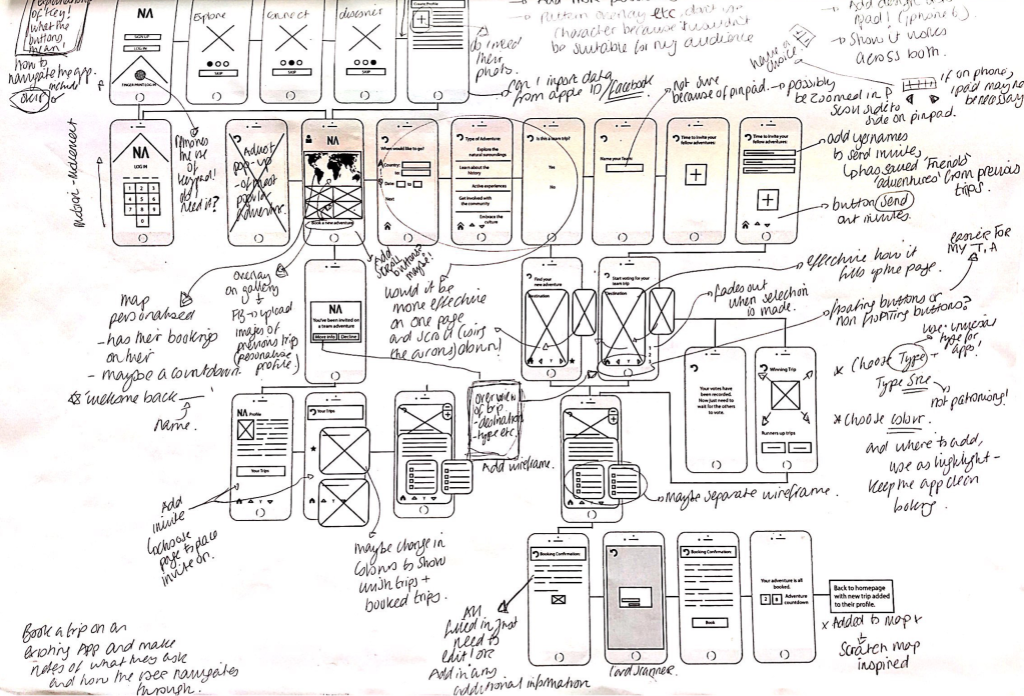 explanations
of key!
what the
buttons
mean!
how to
navigate the app.
include
NA
SIGN UP
LOG IN
FINGERPRINT LOG IN
Explore
SKIP
Connect
SKIP
discover
SKIP
Create Profile
do i need
their
photo.
can i import data
from apple ID/Facebook
pattern overlay etc, don't
character because it wouldn't
be suitable for my audience
name of
choice
→ Show it works
across both.
if on phone,
ipad may not
be necessary
not sure
because of pinpad. → possibly
be zoomed in &
scroll side to
side on pinpad.
NA
LOG IN
1 2 3
4 5 6
7 8 9
0
Removes
the use
of
keypad!
do i
need it?
Adjust
pop-up
of most
popular
adventure.
NA
Book a new adventure
When would you like to go?
Country:
Date:
Next
Type of Adventure:
Explore the
natural surroundings
Learn about the
history
Active experiences
Get involved with
the community
Embrace the
culture
Is this a team trip?
Yes
No
Name your Team:
Time to invite your
fellow adventures:
Time to invite your
fellow adventures:
add usernames
to send invite,
↳ has saved 'Friends'
'adventures' from previous
trips.
button send
out invites.
map
personalised
- has their bookings
on their
- maybe a countdown
* 'welcome back —'
Name.
overlay
on gallery
upload
images of
previous trip
(personalise
profile.)
NA
You've been invited on
a team adventure
More info
Decline
Add
scroll
buttons?
maybe!!
would it be
more effective
on one page
and scroll (using
the arrows) down!
Find your
new adventure
Destination
Start voting for your
team trip
Destination
effective how it
fills up the page.
easier for
my T.A
fades out
when selection
is made.
floating buttons or
non floating buttons?
use universal
type for
apps!
* Choose Type +
Type Size
not patronising!
* Choose colour.
and where to add,
use as highlight -
keep the app clean
looking.
Your votes have
been recorded.
Now just need to
wait for the others
to vote.
Winning Trip
Runners up trips
NA Profile
Your Trips
Your Trips
overview
of trip
- destination
- type etc.
Add wireframe.
Maybe separate wireframe.
Add
invite
↳ choose
page to place
invite on.
maybe change in
colours to show
wish trips +
booked trips.
Booking Confirmation:
Booking Confirmation:
Book
Your adventure is all
booked.
2 8 Adventure
countdown
Back to homepage
with new trip added
to their profile.
x Added to map x
Scratch map
inspired
All
filled in, just
need to
edit! or
Add in any
additional information
Card scanner.
Book a trip on an
existing App and make
notes of what they ask
and how the user navigates
through.